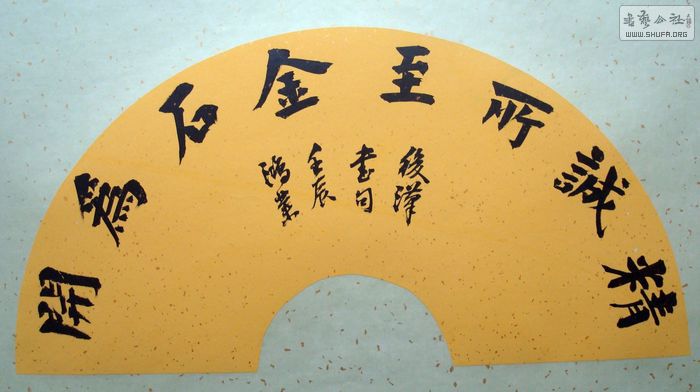 精誠所至金石爲開
後漢
書句
壬辰
鴻業
書藝公社
WWW.SHUFA.ORG